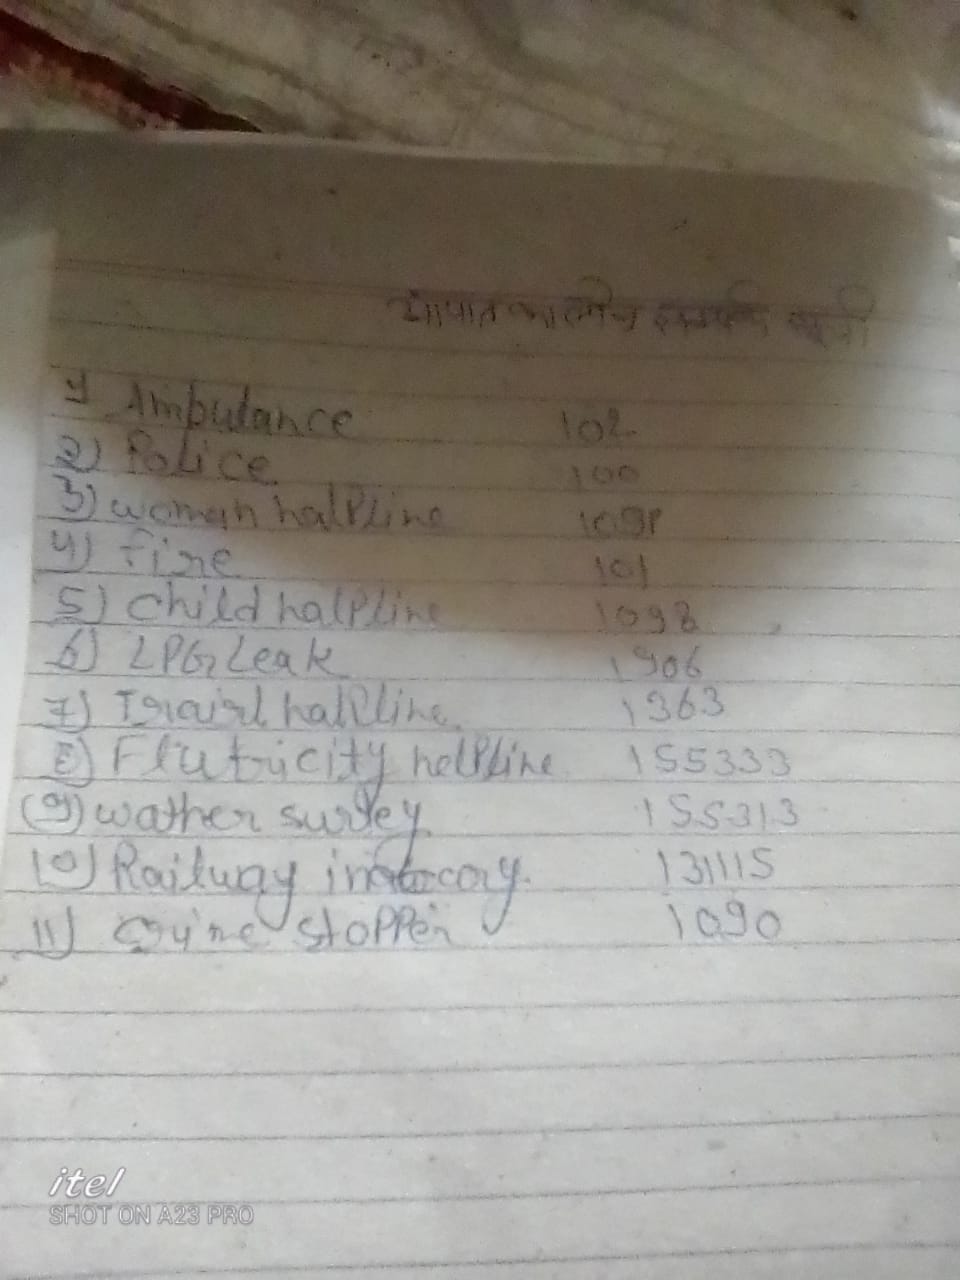 आपातकालीन सम्पर्क सूची
1) Ambulance 102
2) Police 100
3) woman halpline 1091
4) Fire 101
5) Child halpline 1098
6) LPG Leak 1906
7) halpline 1363
8) helpline 155333
(9) wather survey 155313
10) Railway 131115
11) stopper 1090
itel
SHOT ON A23 PRO